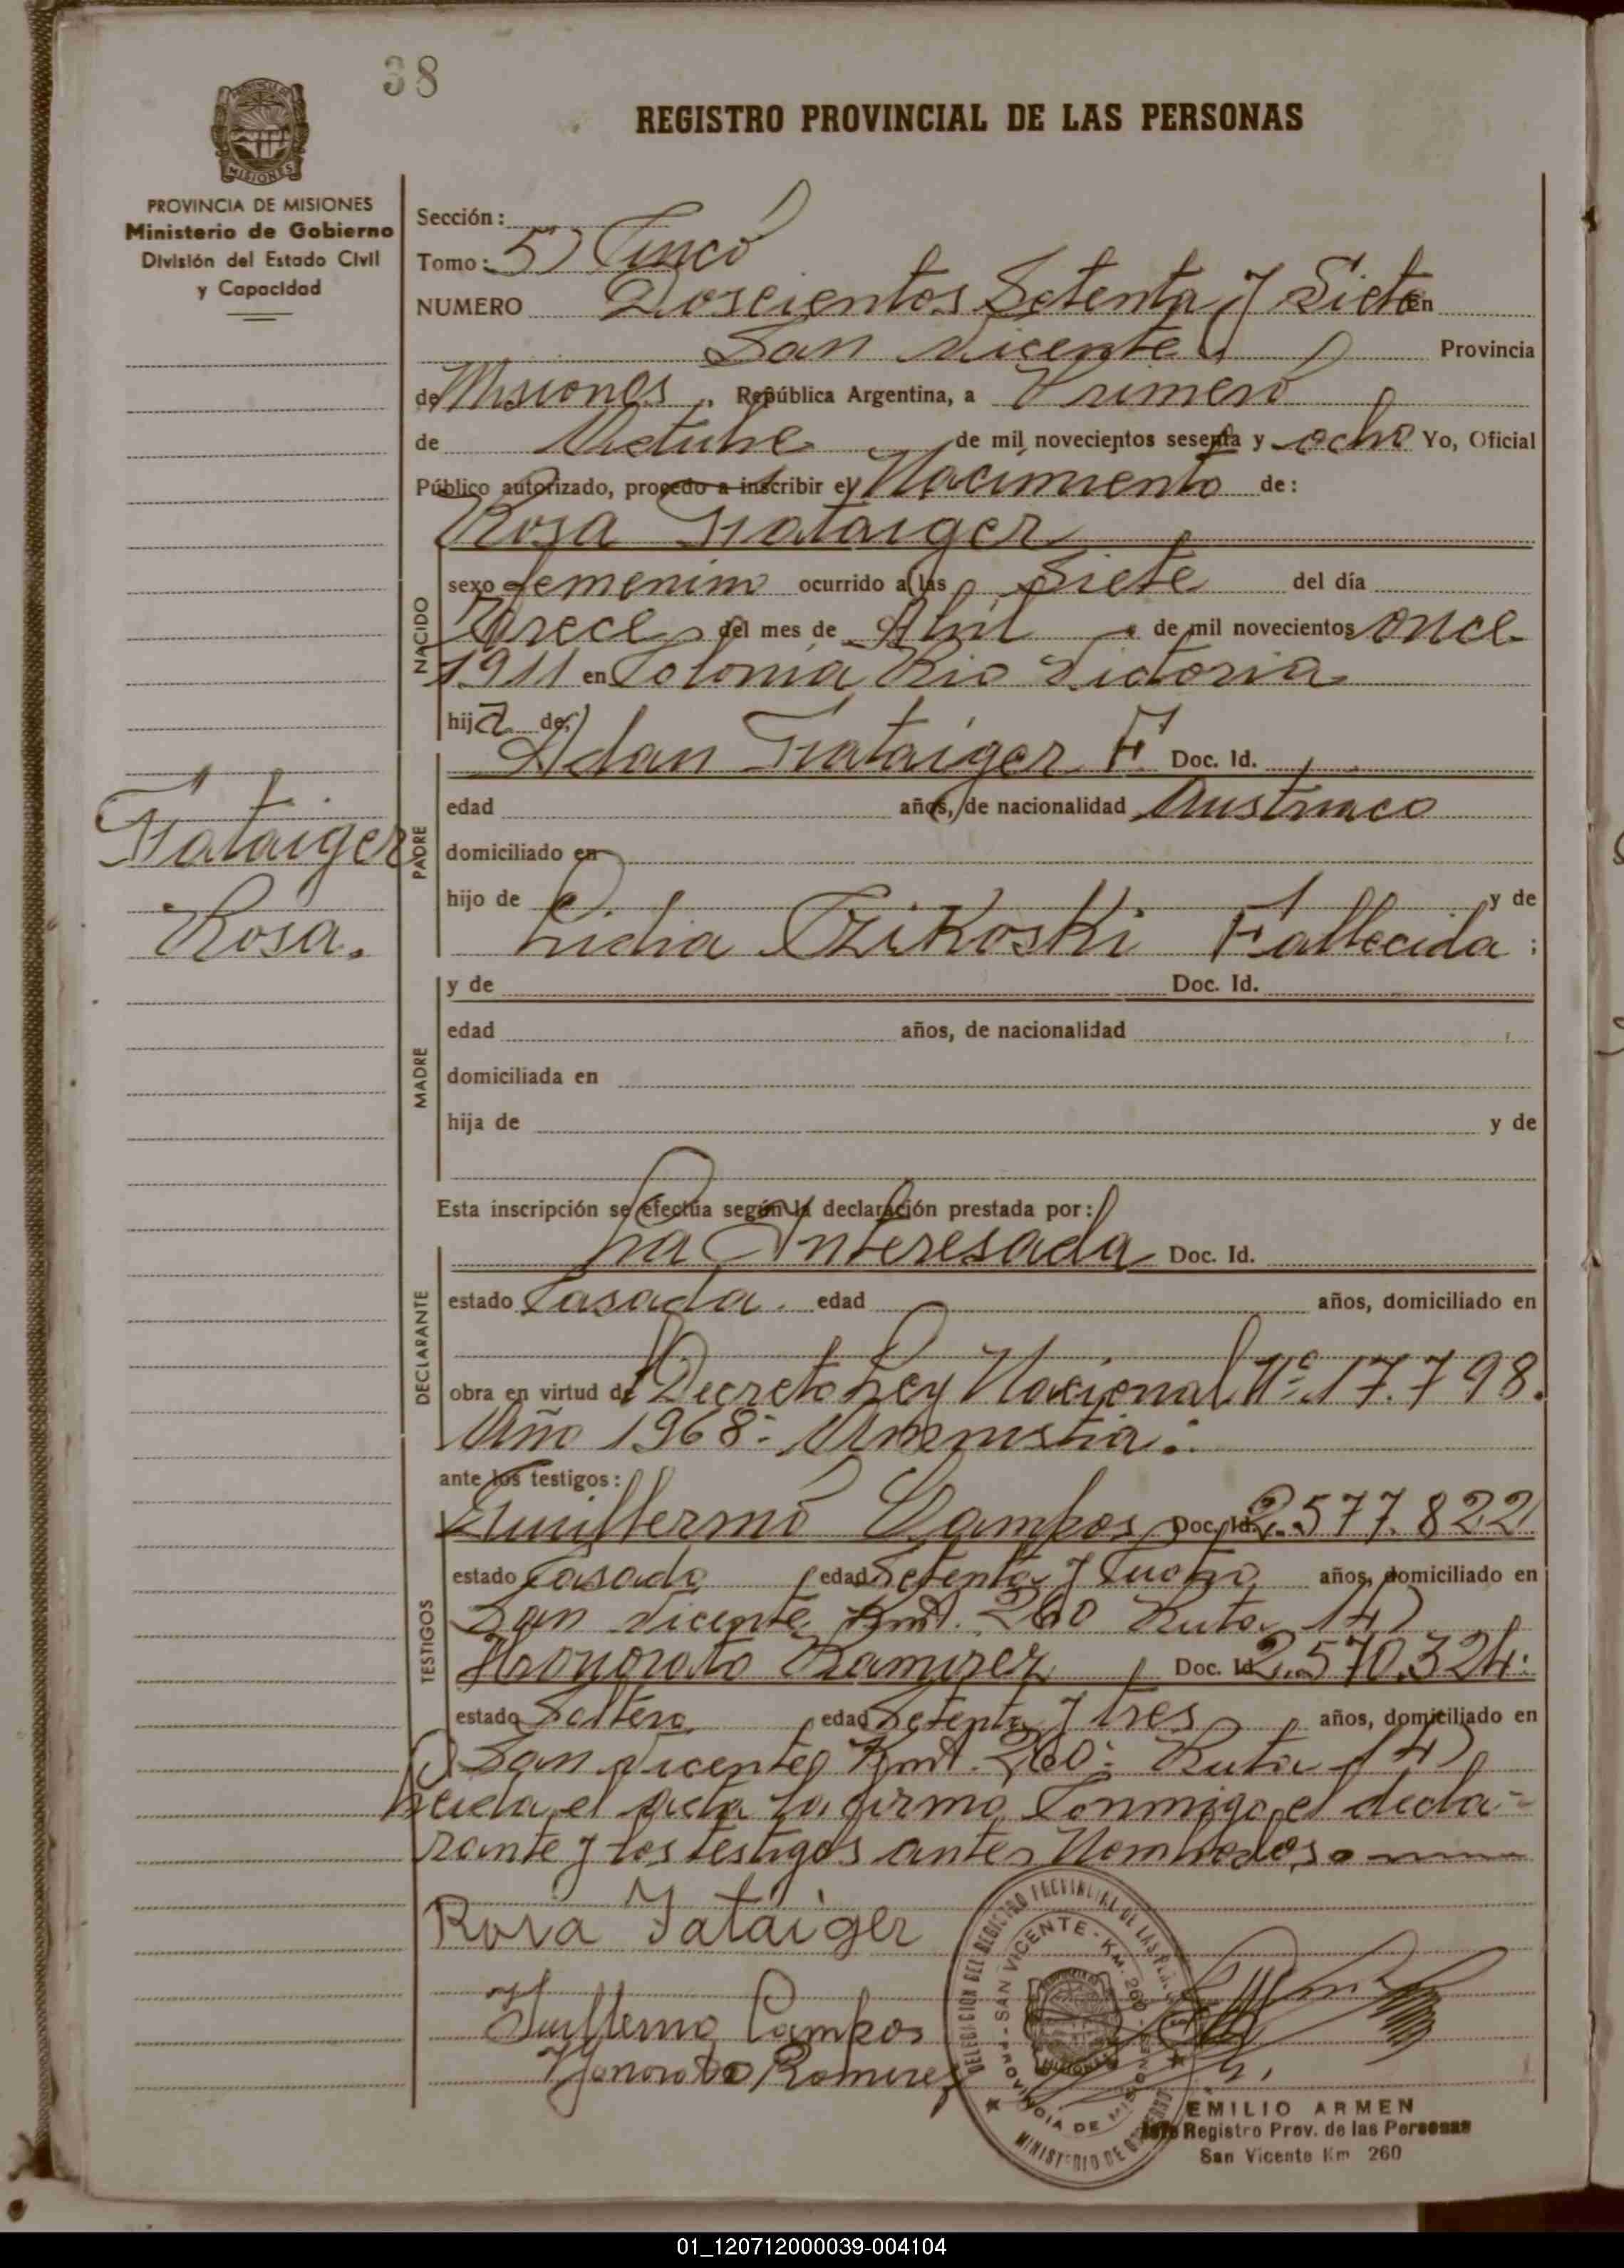 38
REGISTRO PROVINCIAL DE LAS PERSONAS
PROVINCIA DE MISIONES
Ministerio de Gobierno
División del Estado Civil
y Capacidad
Sección:
Tomo: 5) Cinco
NUMERO Doscientos Setenta y Siete en
San Vicente Provincia
de Misiones, República Argentina, a Primero
de Octubre de mil novecientos sesenta y ocho Yo, Oficial
Público autorizado, procedo a inscribir el Nacimiento de:
Rosa Tataiger
NACIDO
sexo femenino ocurrido a las Siete del día
trece del mes de Abril de mil novecientos once
1911 en Colonia Rio Victoria
hija de:
PADRE
Adan Tataiger F Doc. Id.
edad años, de nacionalidad Austriaco
domiciliado en
hijo de y de
Lidia Fallecida:
Tataiger
Rosa.
MADRE
y de Doc. Id.
edad años, de nacionalidad
domiciliada en
hija de y de
Esta inscripción se efectúa según la declaración prestada por:
DECLARANTE
La Interesada Doc. Id.
estado Casada. edad años, domiciliado en
obra en virtud de Decreto Ley Nacional Nº 17.798.
Año 1968:
ante los testigos:
TESTIGOS
Guillermo Campos Doc. Id. 2.577.822
estado Casado edad Setenta y Cuatro años, domiciliado en
San Vicente Kmt. 260 Ruta 14)
Honorato Ramirez Doc. Id. 2.570.324:
estado Soltero edad Setenta y tres años, domiciliado en
San Vicente Kmt. 260: Ruta 14)
Leida el acta la firma Conmigo el decla-
rante y los testigos antes Nombrados
Rosa Tataiger
Guillermo Campos
Honorato Ramirez
DELEGACION DEL REGISTRO PROVINCIAL DE LAS PERSONAS
SAN VICENTE - KM. 260 - PROVINCIA DE MISIONES
MINISTERIO DE GOBIERNO
EMILIO ARMEN
Jefe Registro Prov. de las Personas
San Vicente Km 260
01_120712000039-004104